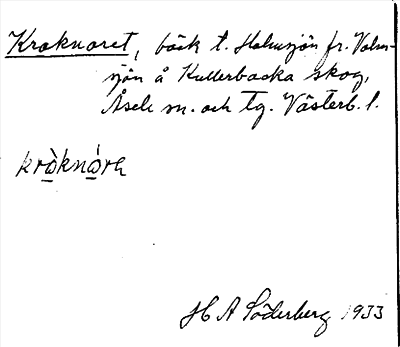 Kroknoret, bäck t. Holmsjön fr. Valm-
sjön å Kullerbacka skog,
Åsele sn. och tg. Västerb. l.
kròknóre
H A Söderberg 1933